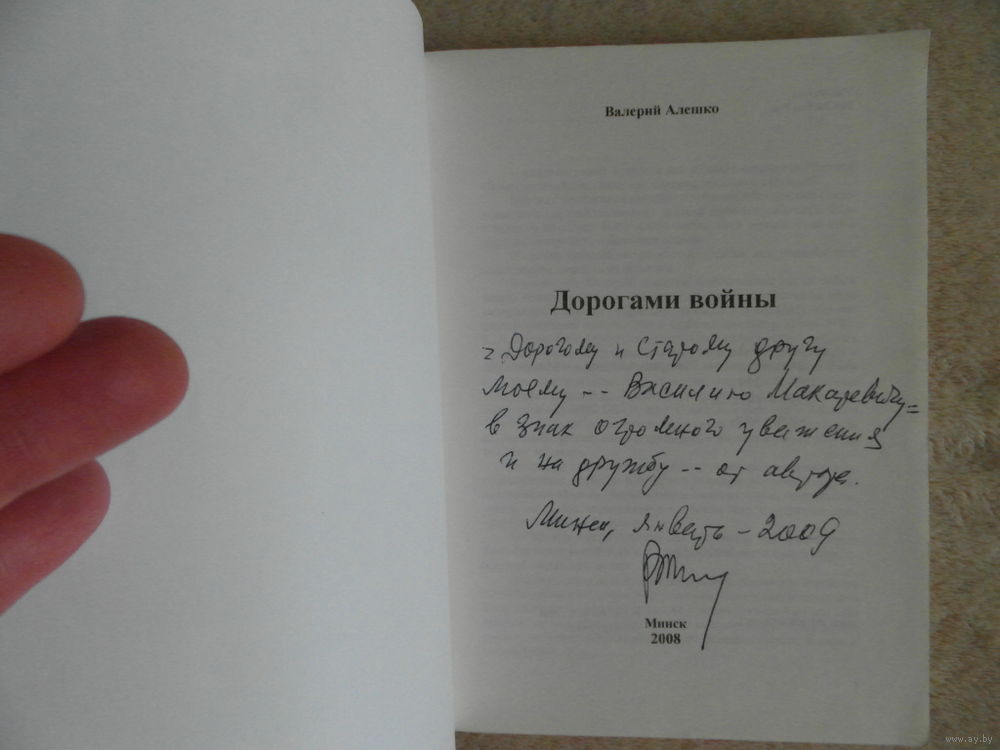 Валерий Алешко
Дорогами войны
Дорогому и старому другу
моему -- Василию Макаревичу =
в знак огромного уважения
и на дружбу -- от автора.
Минск, январь - 2009
Минск
2008
www.ay.by